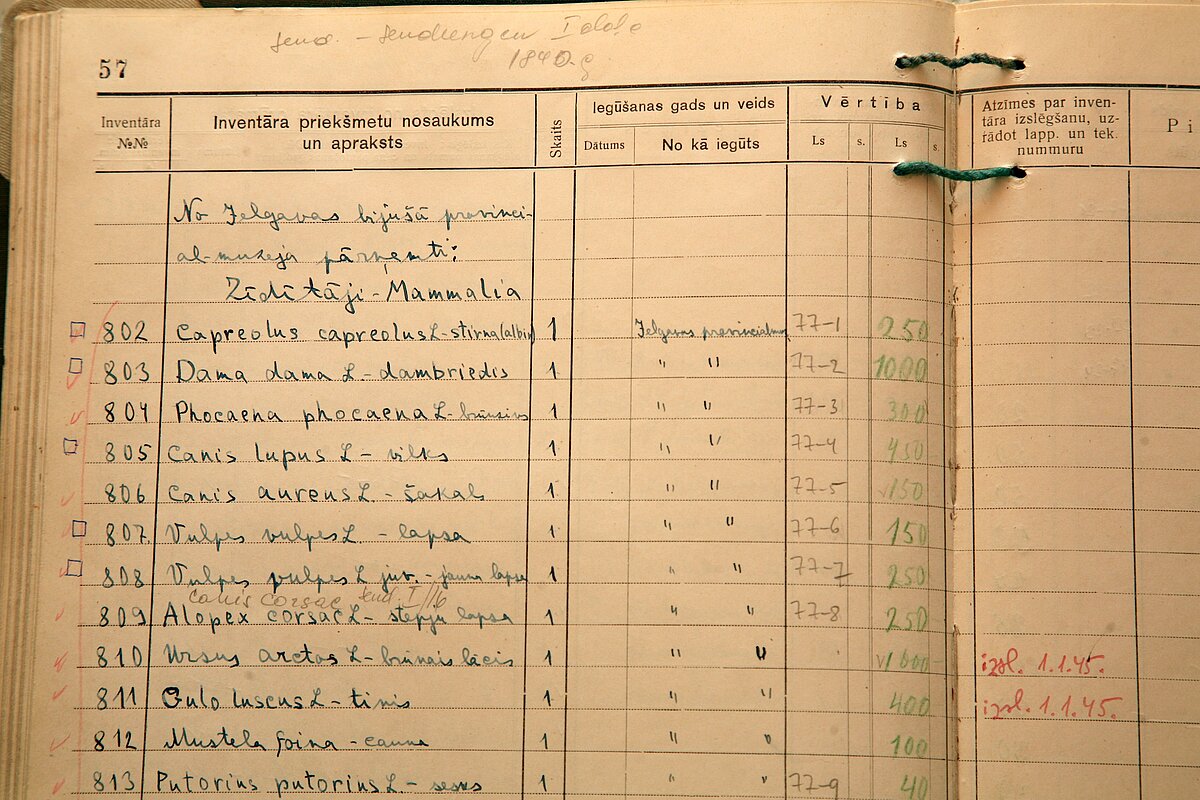 send. - sendungen I
1840. g
57
Inventāra №№ Inventāra priekšmetu nosaukums un apraksts Skaits Iegūšanas gads un veids Dātums No kā iegūts Vērtība Ls s. Ls s. Atzīmes par inventāra izslēgšanu, uzrādot lapp. un tek. nummuru Pi
No Jelgavas bijušā provinci-
al-muzeja pārņemti:
Zīdītāji - Mammalia
802 Capreolus capreolus L - stirna (albin) 1 Jelgavas provincialmuz 77-1 250
803 Dama dama L. - dambriedis 1 " " 77-2 1000
804 Phocaena phocaena L - 1 " " 77-3 300
805 Canis lupus L - vilks 1 " " 77-4 450
806 Canis aureus L. - šakals 1 " " 77-5 150
807. Vulpes vulpes L. - lapsa 1 " " 77-6 150
808 Vulpes vulpes L juv. - jauna lapsa 1 " " 77-7 250
Canis Corsac send. I/16
809 Alopex corsac L - stepju lapsa 1 " " 77-8 250
810 Ursus arctos L - brūnais lācis 1 " " 1000 izsl. 1.1.45.
811 Gulo luscus L - tinis 1 " " 400 izsl. 1.1.45.
812 Mustela foina - cauna 1 " " 100
813 Putorius putorius L. - sesks 1 " " 77-9 40